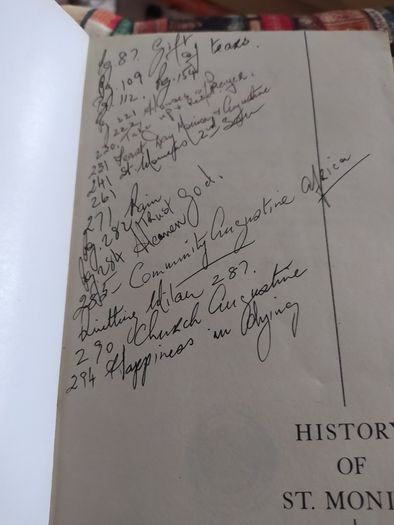 pg. 87 Gift of tears.
pg. 109
pg. 112. pg. 154
221
222
230.
231 Feast day Monica & Augustine
241 St. Monica's
261
271 Pain
pg. 282 Trust God.
pg 284 Heaven
285- Community Augustine Africa
Milan 287.
290 Church Augustine
294 Happiness in Dying
HISTORY
OF
ST. MONI